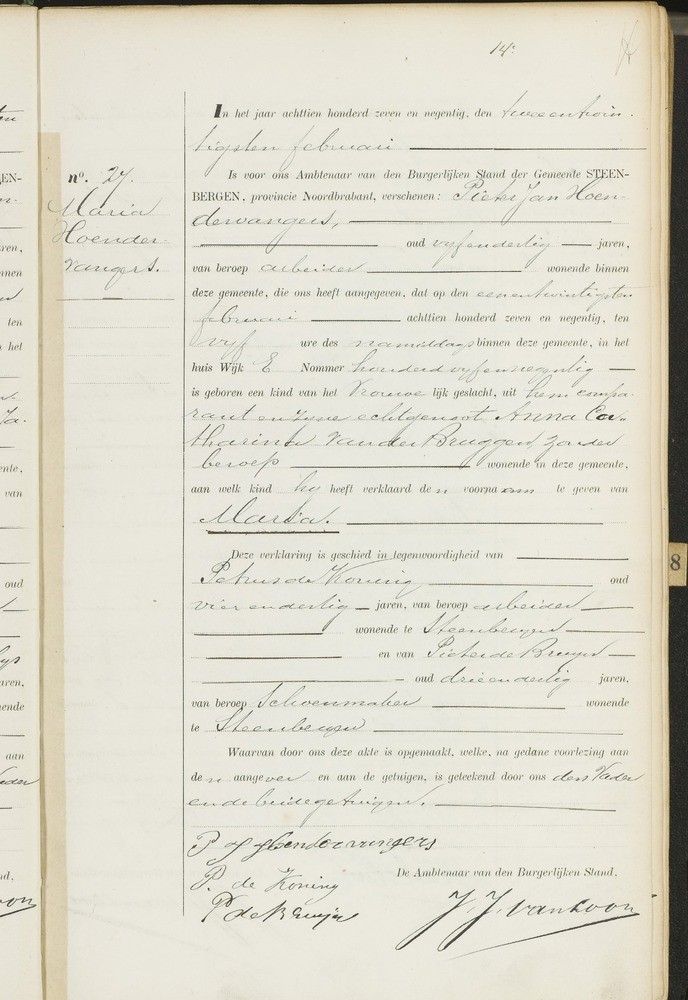 14e
n°. 27.
Maria
Hoender-
vangers.
In het jaar achttien honderd zeven en negentig, den tweeentwin-
tigsten februari
Is voor ons Ambtenaar van den Burgerlijken Stand der Gemeente STEEN-
BERGEN, provincie Noordbrabant, verschenen: Pieter Jan Hoen-
dervangers,
oud vyfendertig jaren,
van beroep arbeider wonende binnen
deze gemeente, die ons heeft aangegeven, dat op den eenentwintigsten
februari achttien honderd zeven en negentig, ten
vyf ure des namiddags binnen deze gemeente, in het
huis Wijk E Nommer honderd vyfennegentig
is geboren een kind van het Vrouwe lijk geslacht, uit hem compa-
rant en zyne echtgenoot Anna Ca-
tharina van der Bruggen, zonder
beroep wonende in deze gemeente,
aan welk kind hy heeft verklaard de n voorna am te geven van
Maria.
Deze verklaring is geschied in tegenwoordigheid van
Petrus de Koning oud
vier en dertig jaren, van beroep arbeider
wonende te Steenbergen
en van Pieter de Bruyn
oud drieendertig jaren,
van beroep Schoenmaker wonende
te Steenbergen
Waarvan door ons deze akte is opgemaakt, welke, na gedane voorlezing aan
de n aangever en aan de getuigen, is geteekend door ons den Vader
en de beide getuigen.
P J Hoendervangers
P. de Koning
De Ambtenaar van den Burgerlijken Stand,
P de Bruijn
J. J. van Loon
8